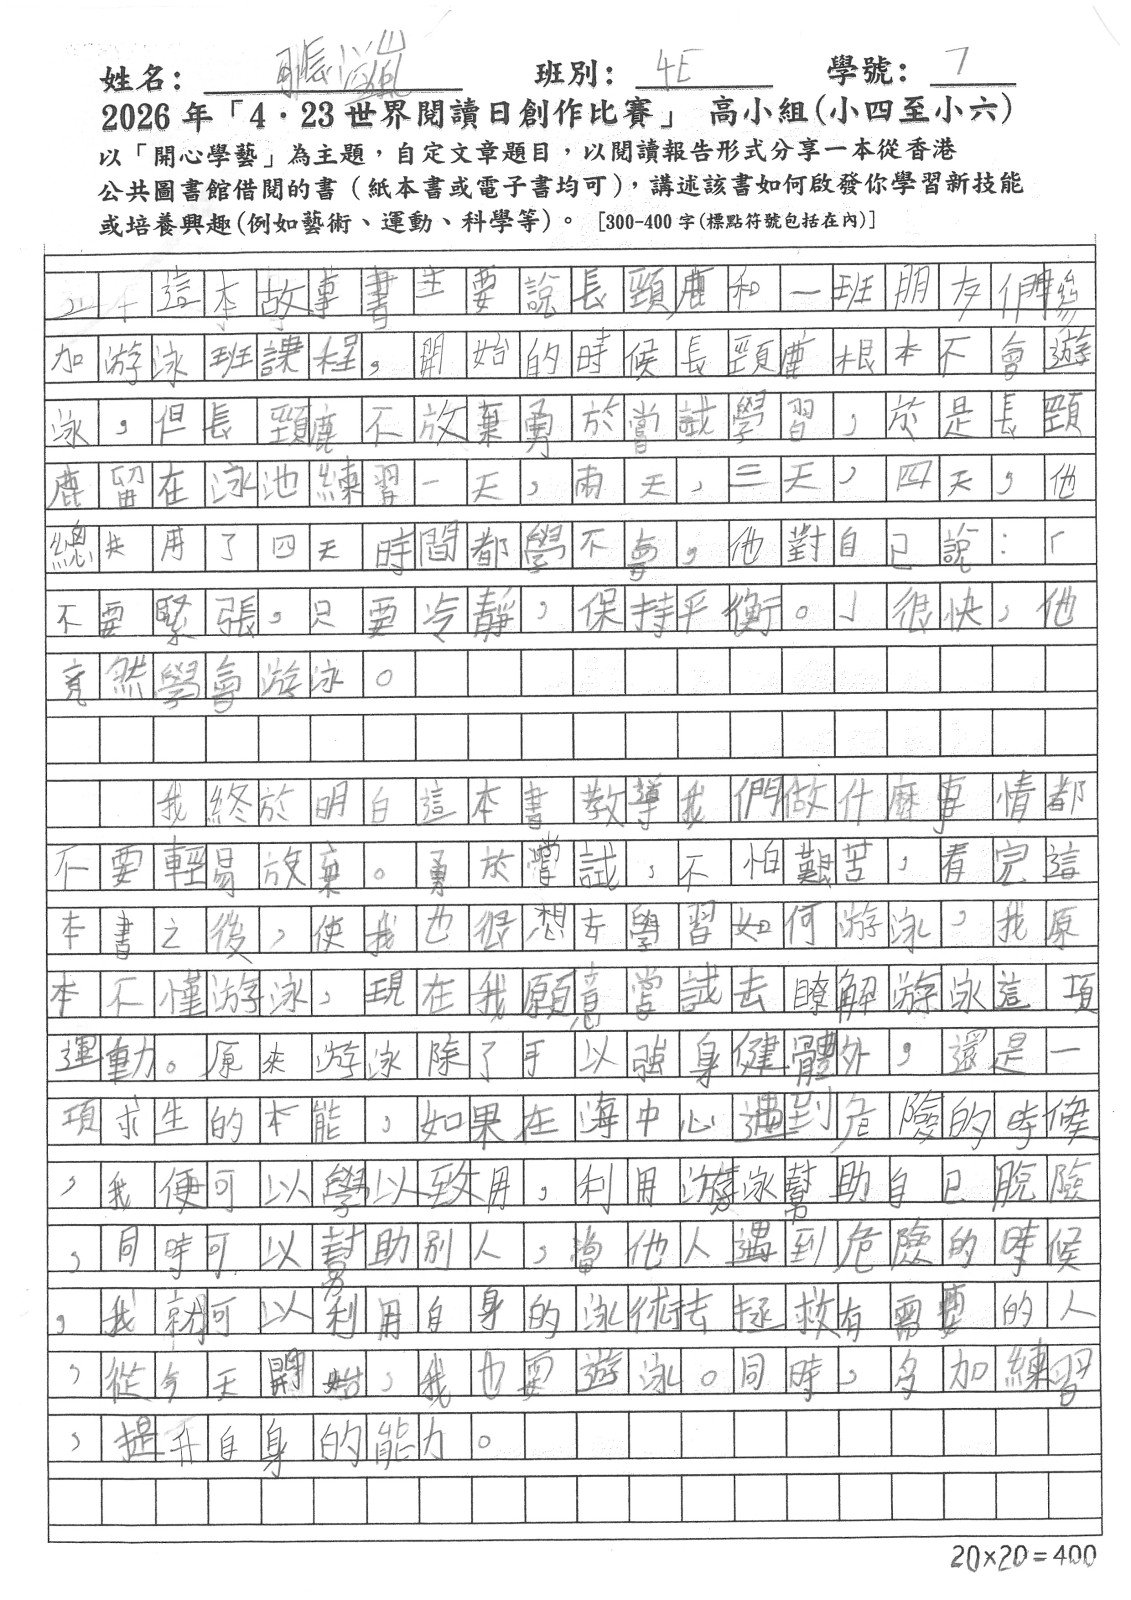 姓名： 班別： 4E 學號： 7
2026 年「4．23 世界閱讀日創作比賽」 高小組(小四至小六)
以「開心學藝」為主題，自定文章題目，以閱讀報告形式分享一本從香港
公共圖書館借閱的書（紙本書或電子書均可），講述該書如何啟發你學習新技能
或培養興趣(例如藝術、運動、科學等)。 [300-400 字(標點符號包括在內)]
這本故事書主要說長頸鹿和一班朋友們參
加游泳班課程，開始的時候長頸鹿根本不會遊
泳，但長頸鹿不放棄勇於嘗試學習，於是長頸
鹿留在泳池練習一天，兩天，三天，四天，他
總共用了四天時間都學不會，他對自已說：「
不要緊張，只要冷靜，保持平衡。」很快，他
竟然學會游泳。
我終於明白這本書教導我們做什麼事情都
不要輕易放棄。勇於嘗試，不怕艱苦，看完這
本書之後，使我也很想去學習如何游泳，我原
本不懂游泳，現在我願意嘗試去瞭解游泳這項
運動。原來游泳除了手以強身健體外，還是一
項求生的本能，如果在海中心遇到危險的時候
，我便可以學以致用，利用游泳幫助自已脫險
，同時可以幫助別人，當他人遇到危險的時候
，我就可以利用自身的泳術去拯救有需要的人
，從今天開始，我也要遊泳。同時，多加練習
，提升自身的能力。
20×20=400